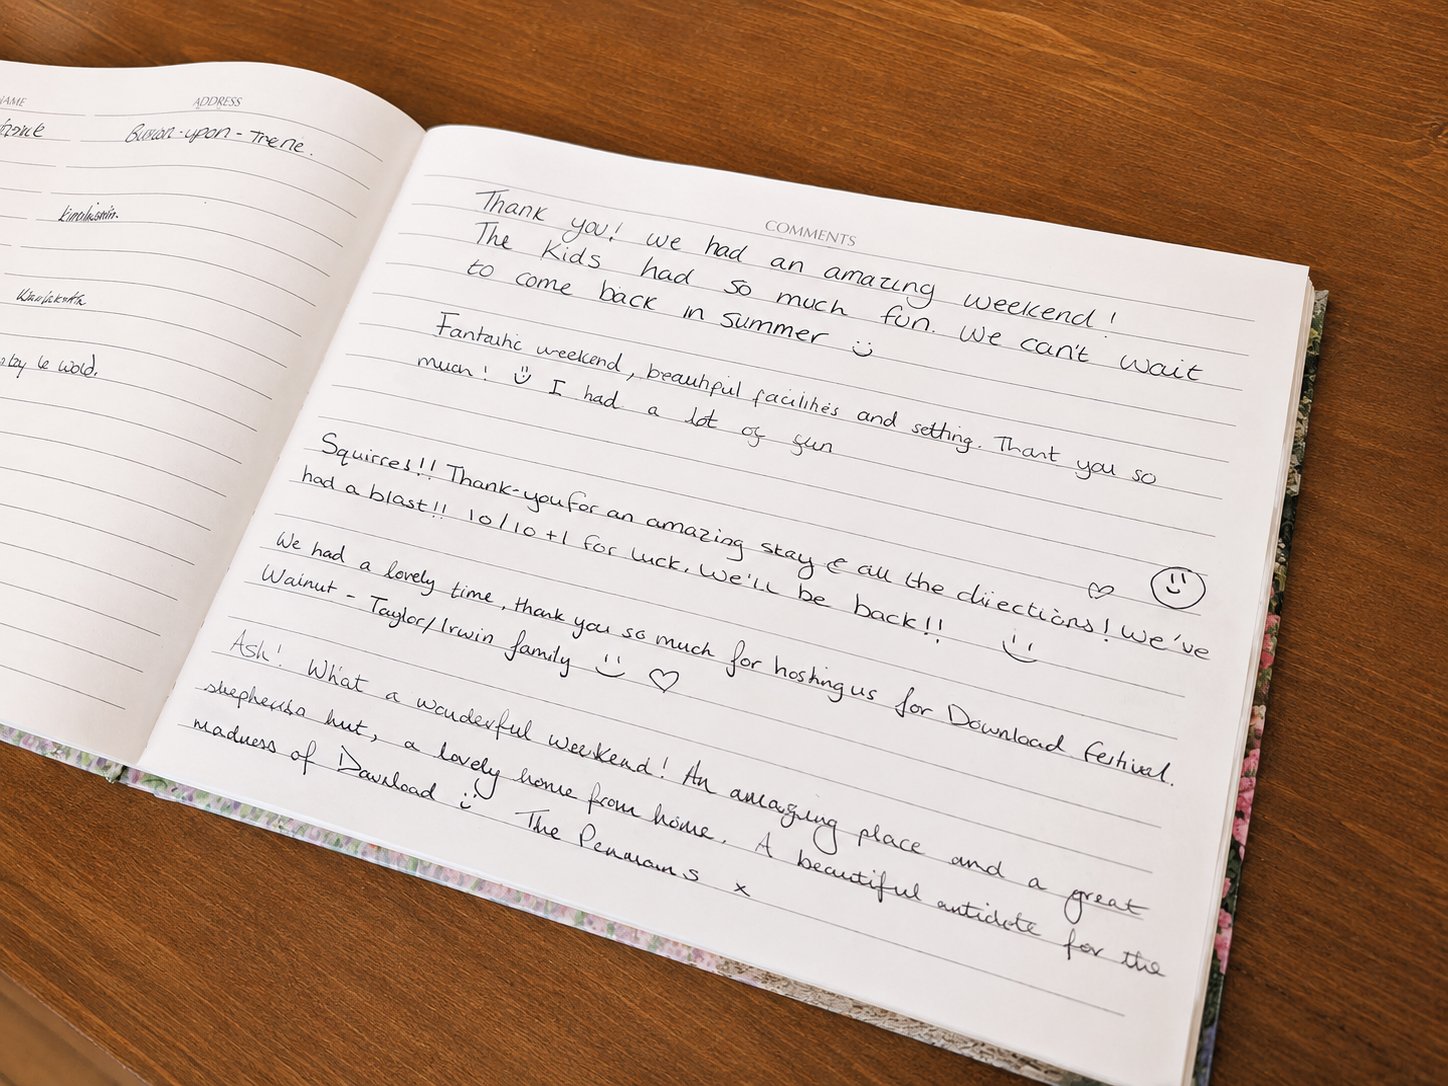 NAME
ADDRESS
Burton-upon-Trent.
COMMENTS
Thank you! We had an amazing weekend!
The kids had so much fun. We can't wait
to come back in summer
Fantastic weekend, beautiful facilities and setting. Thank you so
much! I had a lot of fun
Squirrels!! Thank-you for an amazing stay & all the directions! We've
had a blast!! 10/10 +1 for luck. We'll be back!!
We had a lovely time, thank you so much for hosting us for Download festival.
Walnut - Taylor/Irwin family
Ash! What a wonderful weekend! An amazing place and a great
shepherds hut, a lovely home from home. A beautiful antidote for the
madness of Download The Penmans x